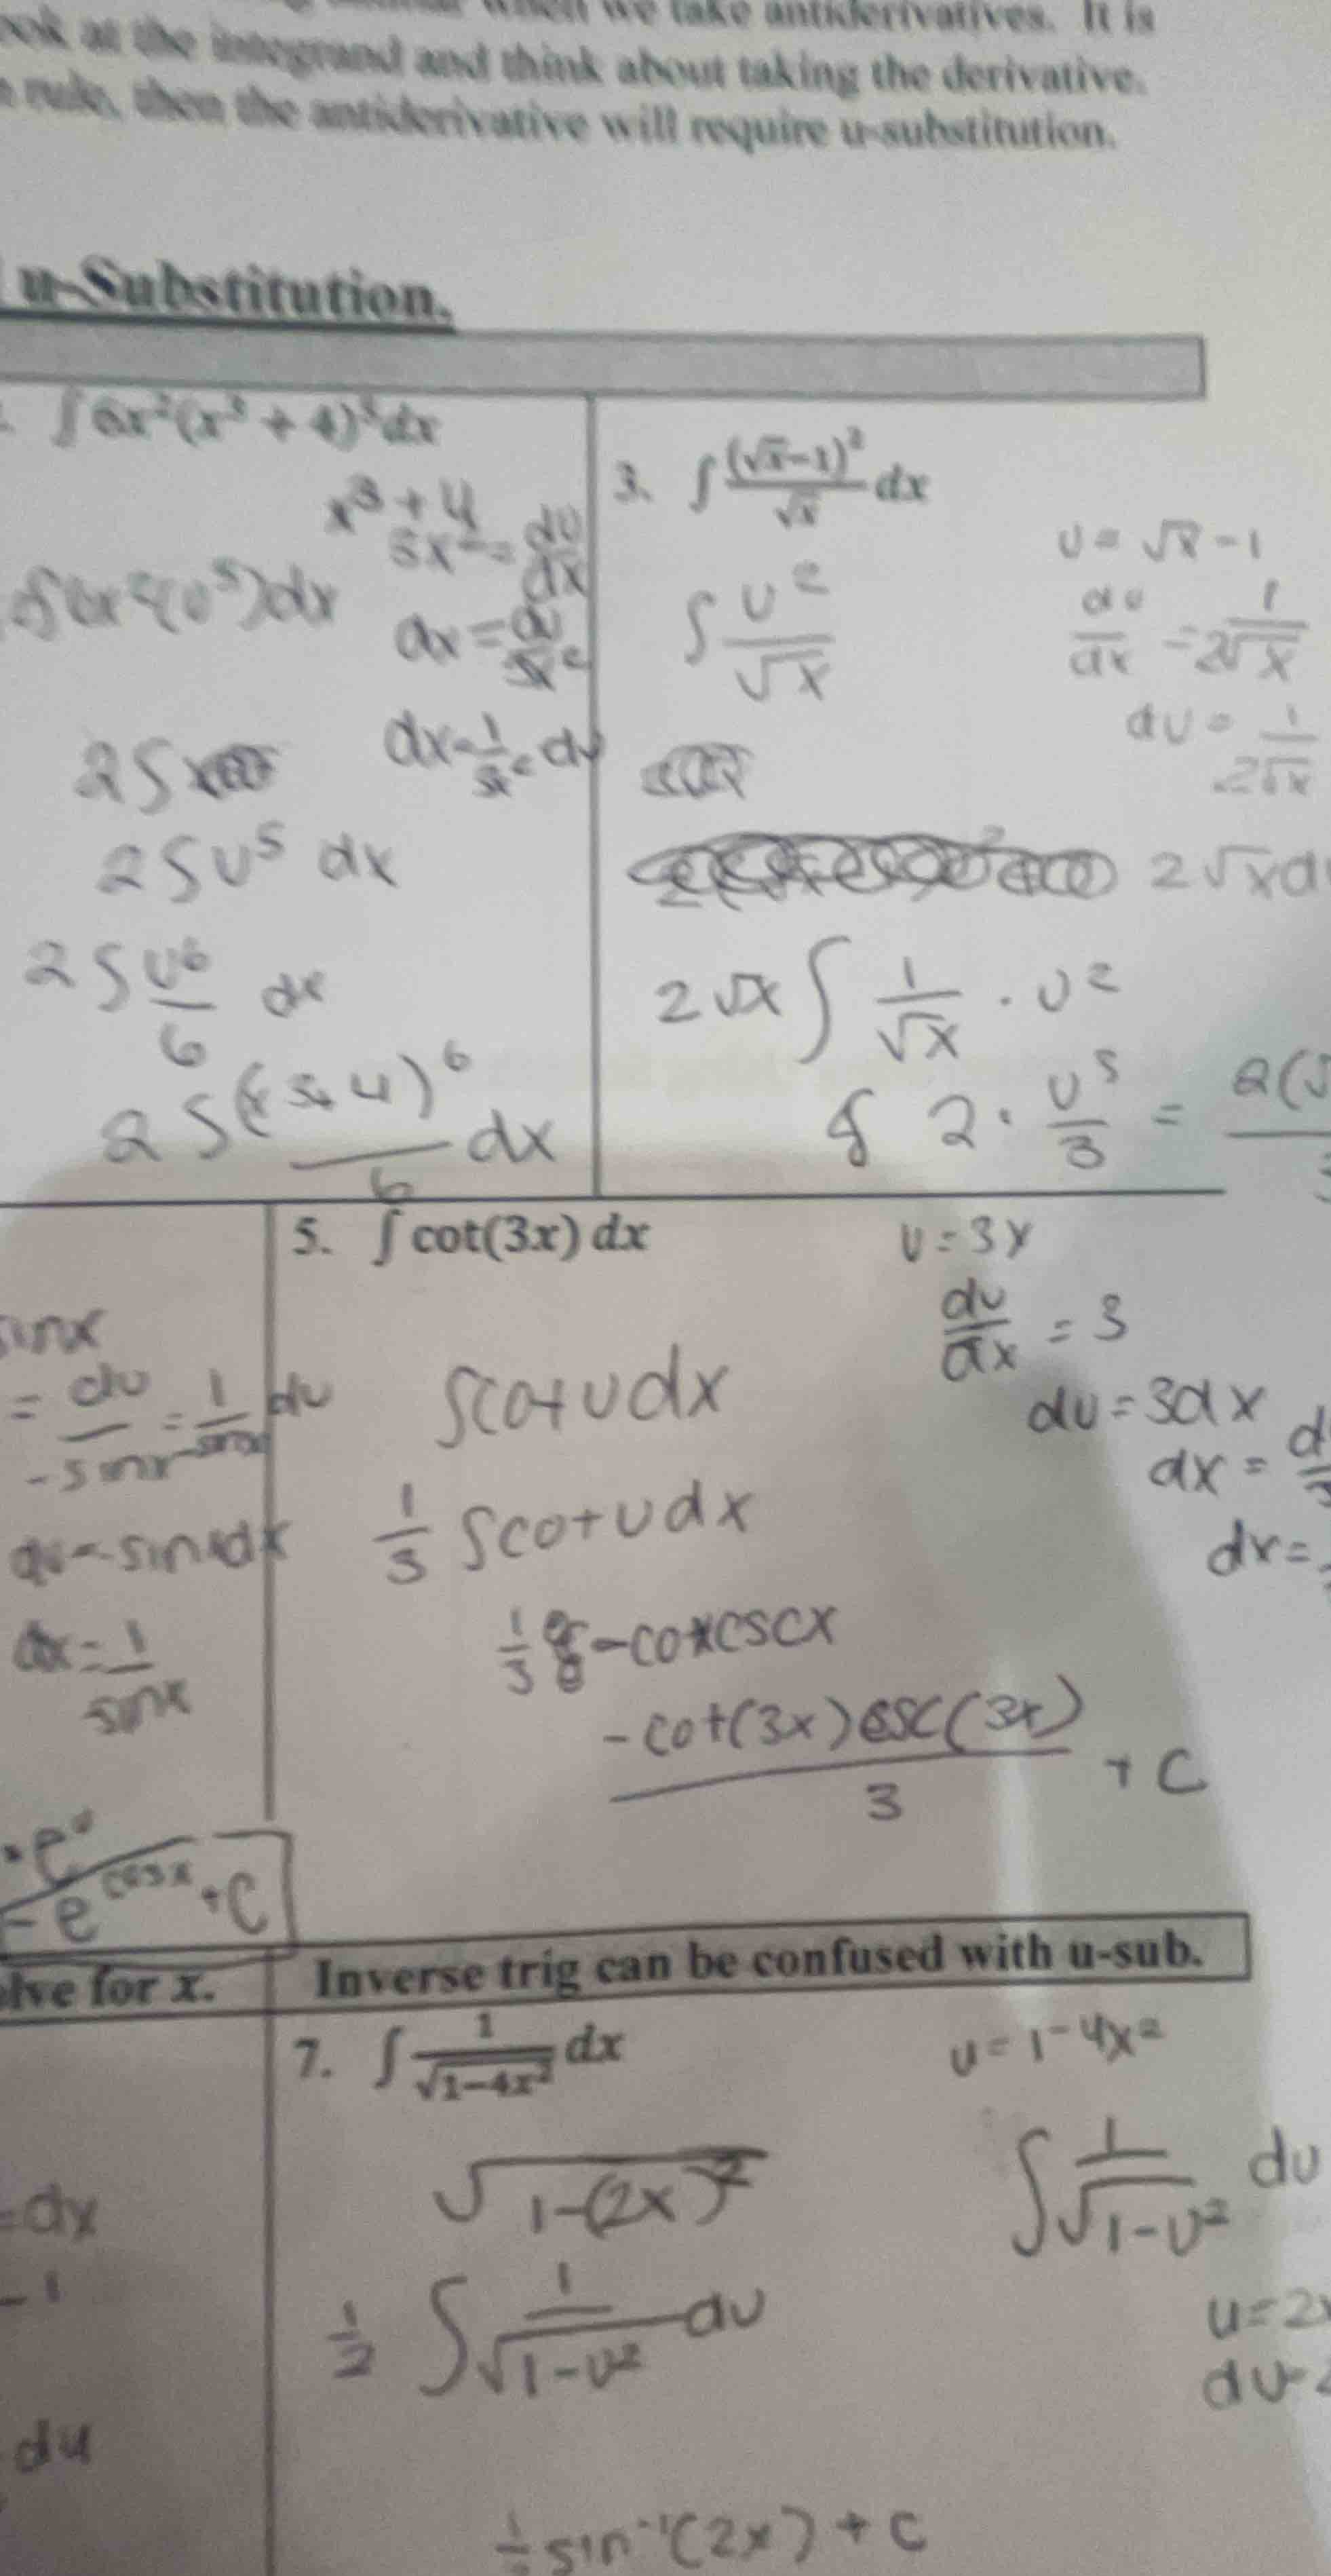 when we take antiderivatives. It is
ook at the integrand and think about taking the derivative.
rule, then the antiderivative will require u-substitution.
u-Substitution.
∫6x²(x³ + 4)⁵dx
x³ + 4
3x² = du/dx
∫6x²(u⁵)dx
dx = du/3x²
dx = 1/3x² du
2∫
2∫u⁵ dx
2∫u⁶/6 dx
2∫(x³+4)⁶/6 dx
3. ∫(√x−1)²/√x dx
u = √x − 1
∫u²/√x
du/dx = 1/2√x
du = 1/2√x
2√x d
2√x ∫ 1/√x · u²
2 · u³/3 = 2(
sinx
= du/-sinx = 1/-sinx du
du = -sinxdx
dx = 1/sinx
-e^cosx + C
5. ∫cot(3x) dx
u = 3x
du/dx = 3
∫cot u dx
du = 3dx
dx = d
1/3 ∫cot u dx
dx =
1/3 -cotxcscx
-cot(3x)csc(3x)/3 + C
lve for x.
Inverse trig can be confused with u-sub.
=dx
-1
du
7. ∫1/√1−4x² dx
u = 1-4x²
√1-(2x)²
∫1/√1-u² du
1/2 ∫1/√1-u² du
u = 2x
du =
sin⁻¹(2x) + C